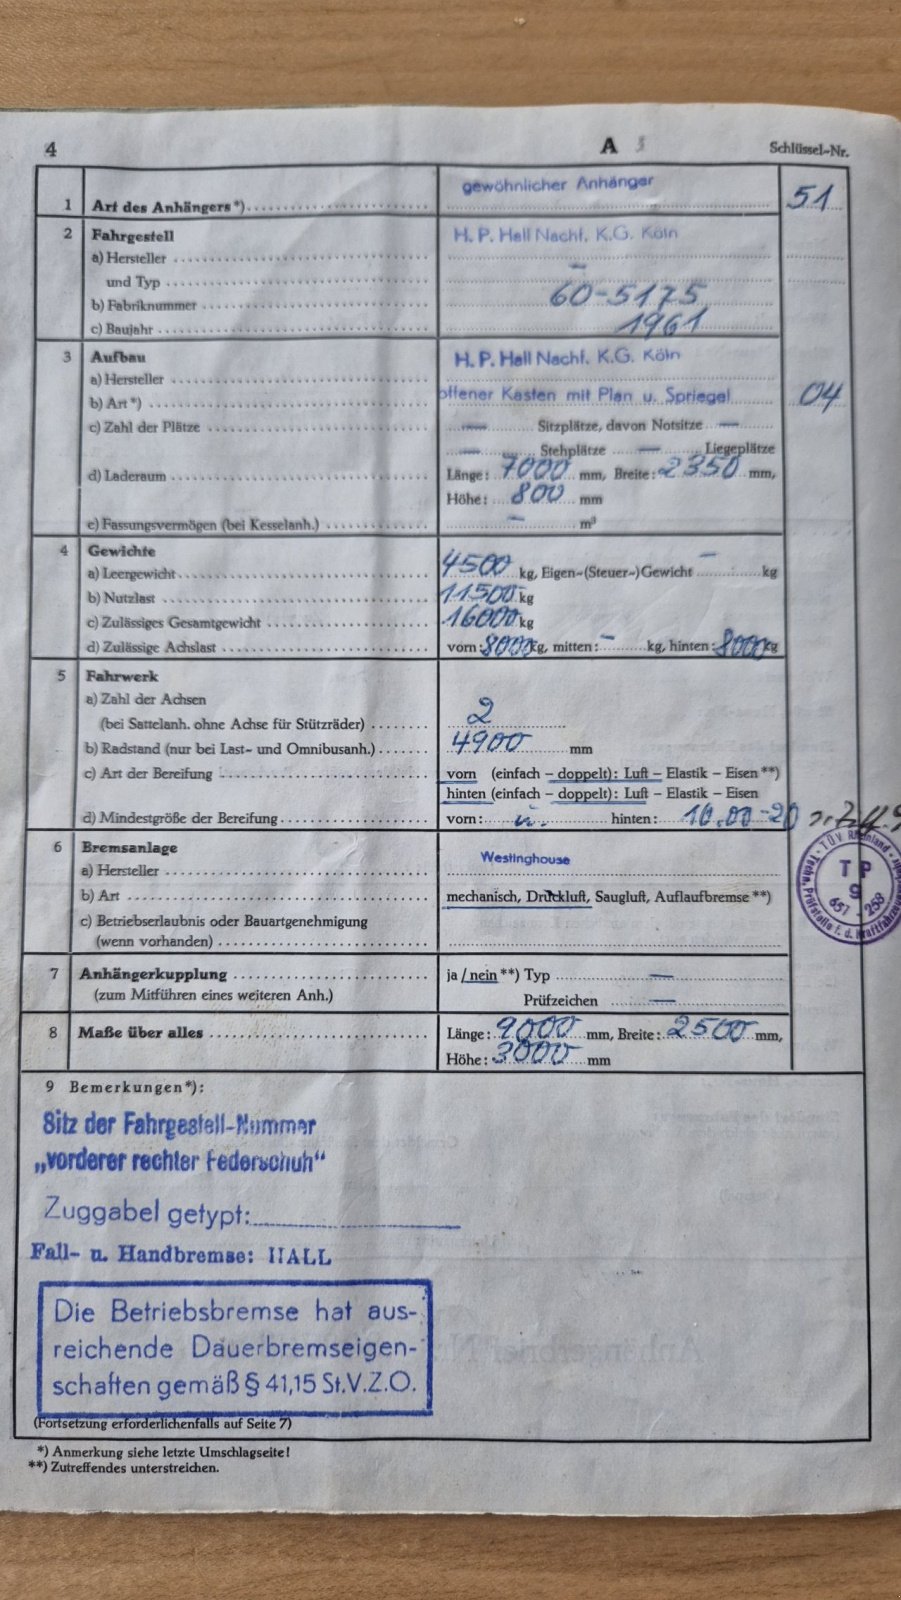 4 A Schlüssel-Nr.
1 Art des Anhängers*) gewöhnlicher Anhänger 51
2 Fahrgestell H. P. Hall Nachf. K.G. Köln
a) Hersteller
und Typ —
b) Fabriknummer 60-5175
c) Baujahr 1961
3 Aufbau H. P. Hall Nachf. K.G. Köln
a) Hersteller
b) Art*) offener Kasten mit Plan u. Spriegel 04
c) Zahl der Plätze — Sitzplätze, davon Notsitze —
— Stehplätze — Liegeplätze
d) Laderaum Länge: 7000 mm, Breite: 2350 mm,
Höhe: 800 mm
e) Fassungsvermögen (bei Kesselanh.) — m³
4 Gewichte
a) Leergewicht 4500 kg, Eigen-(Steuer-)Gewicht — kg
b) Nutzlast 11500 kg
c) Zulässiges Gesamtgewicht 16000 kg
d) Zulässige Achslast vorn: 8000 kg, mitten: — kg, hinten: 8000 kg
5 Fahrwerk
a) Zahl der Achsen
(bei Sattelanh. ohne Achse für Stützräder) 2
b) Radstand (nur bei Last- und Omnibusanh.) 4900 mm
c) Art der Bereifung vorn (einfach – doppelt): Luft – Elastik – Eisen**)
hinten (einfach – doppelt): Luft – Elastik – Eisen
d) Mindestgröße der Bereifung vorn: u. hinten: 10.00-20
6 Bremsanlage Westinghouse
a) Hersteller
b) Art mechanisch, Druckluft, Saugluft, Auflaufbremse**)
c) Betriebserlaubnis oder Bauartgenehmigung
(wenn vorhanden)
TÜV Rheinland
TP
9
651 - 258
Techn. Prüfstelle f. d. Kraftfahrzeug
7 Anhängerkupplung ja / nein**) Typ —
(zum Mitführen eines weiteren Anh.) Prüfzeichen —
8 Maße über alles Länge: 9000 mm, Breite: 2500 mm,
Höhe: 3000 mm
9 Bemerkungen*):
Sitz der Fahrgestell-Nummer
„vorderer rechter Federschuh"
Zuggabel getypt:
Fall- u. Handbremse: HALL
Die Betriebsbremse hat aus-
reichende Dauerbremseigen-
schaften gemäß § 41,15 St.V.Z.O.
(Fortsetzung erforderlichenfalls auf Seite 7)
*) Anmerkung siehe letzte Umschlagseite!
**) Zutreffendes unterstreichen.